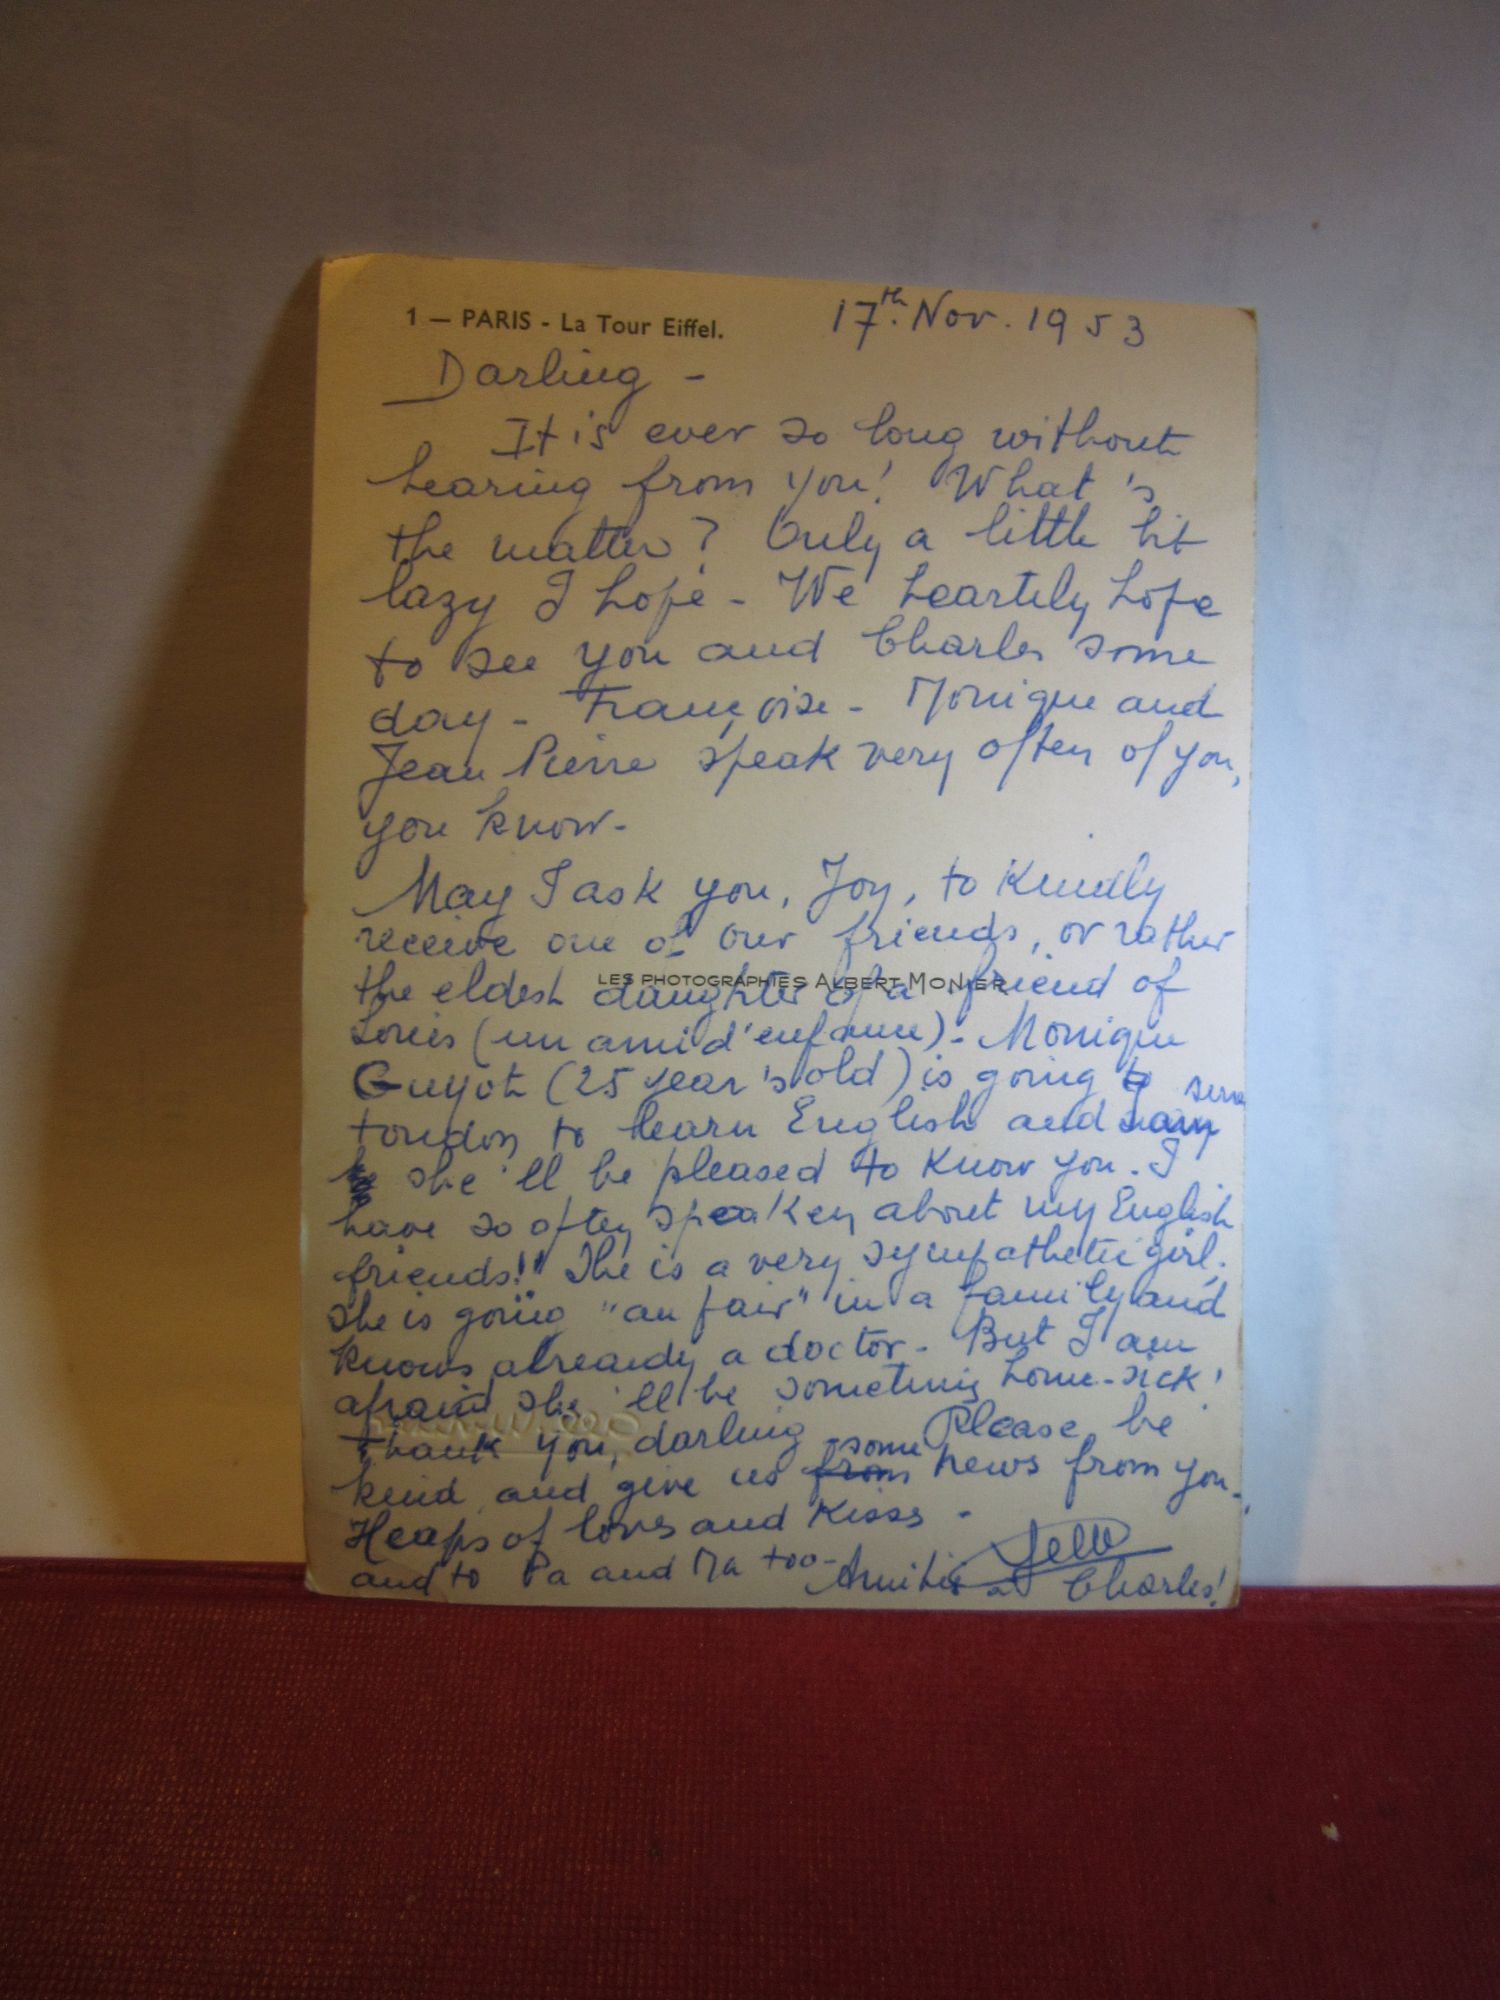 1 — PARIS - La Tour Eiffel.
17th. Nov. 1953
Darling -
It is ever so long without
hearing from you! What's
the matter? Only a little bit
lazy I hope - We heartely hope
to see you and Charles some
day - Françoise - Monique and
Jean Pierre speak very often of you,
you know -
May I ask you, Joy, to kindly
receive one of our friends, or rather
the eldest daughter of a friend of
LES PHOTOGRAPHIES ALBERT MONIER
Louis (un ami d'enfance) - Monique
Guyot (25 year's old) is going to
London to learn English and
she'll be pleased to know you. I
have so often speaken about my English
friends!" She is a very sympathetic girl.
She is going "au pair" in a family and
knows already a doctor - But I am
afraid she'll be someting home-sick!
Thank you, darling - Please be
kind and give us from some news from you -
Heaps of loves and kisses -
and to Pa and Ma too - Amitiés à Charles!